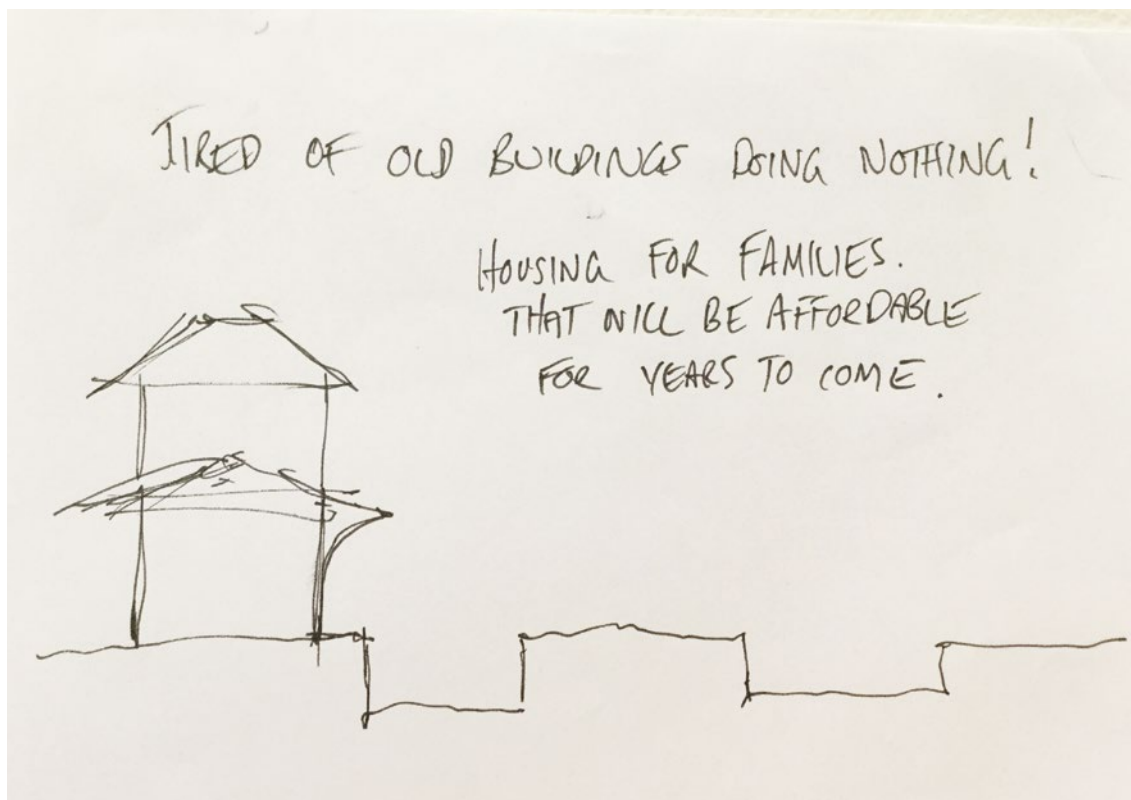 TIRED OF OLD BUILDINGS DOING NOTHING!
HOUSING FOR FAMILIES.
THAT WILL BE AFFORDABLE
FOR YEARS TO COME.